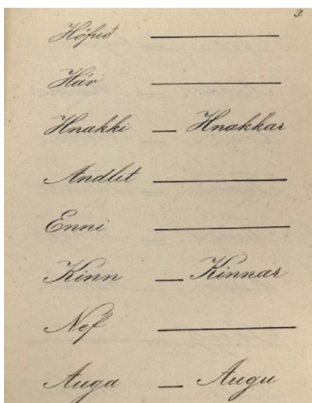 3.
Höfuð ———
Hár ———
Hnakki — Hnakkar
Andlit ———
Enni ———
Kinn — Kinnar
Nef ———
Auga — Augu